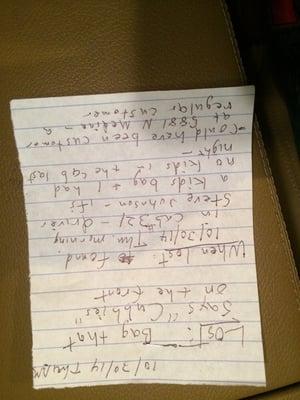 10/30/14 Thurs AM
LOST: Bag that
says "Cubbies"
on the front
When lost: found
10/30/14 Thu morning
in cab #321 - driver
Steve Johnson - it's
a kids bag & I had
no kids in the cab last
night -
→ Could have been customer
at 5881 N - a
regular customer